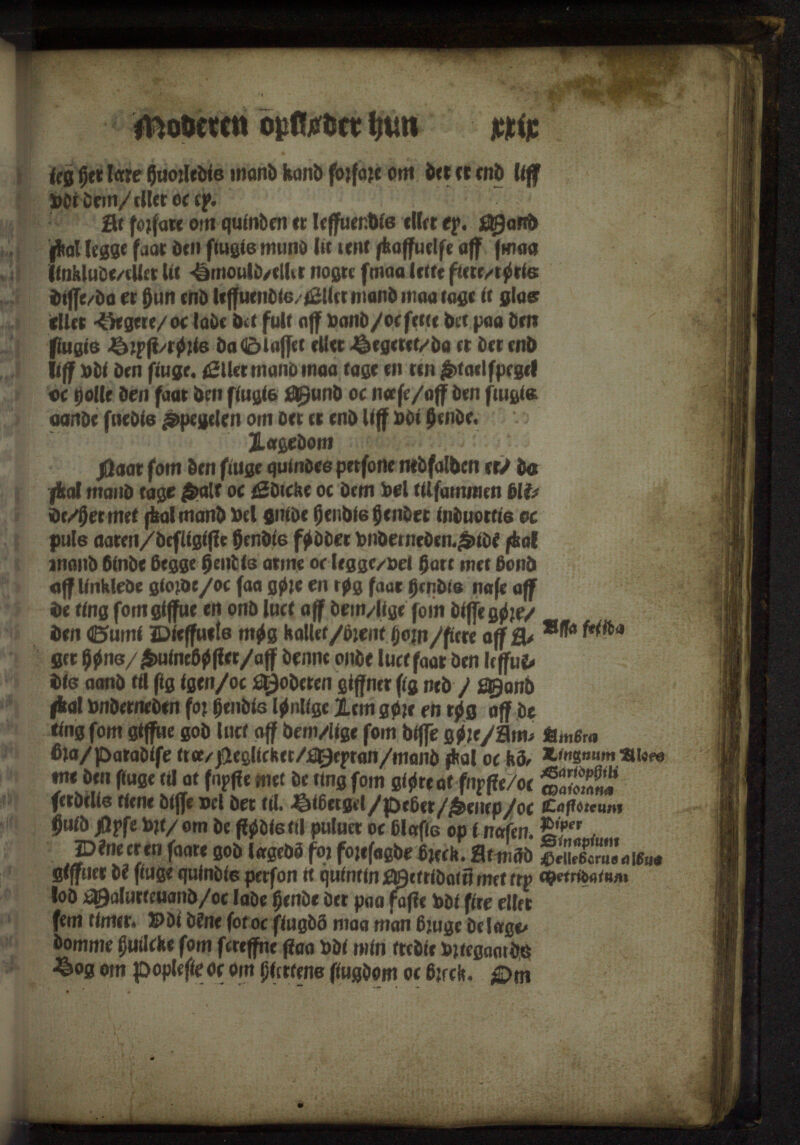 Moderen opstøder hun xxix
ieg her lære huorledis mand kand forfare om der er end liff
vdi dem/eller oc ey.
At forfare om quinden er leffuendis eller ey. Mand
skal legge faar den siugis mund lit rent skaffuelse aff smaa
linklude/eller lit Bmould/eller nogre smaa lette fiere/røris
disse/da er hun end leffuendis/Eller mand maa tage it glas
eller Begere/oc lade det fult aff vand/oc sette det paa den
siugis Bryst/røris da Glasset eller Begeret/da er der end
liff vdi den siuge. Eller mand maa tage en ren Staelspegel
oc holle den faar den siugis Mund oc næse/aff den siugis
aande suedis Spegelen om der er end liff vdi hende.
Lægedom
Naar som den siuge quindes persone nedfalden er/ da
skal mand tage Salt oc Edicke oc dem vel tilsammen bles
de/her met skal mand vel gnide hendis hender induortis oc
puls aaren/desligiste hendis fødder vnderneden. Side skal
mand binde begge hendis arme oc legge/vel hart met bond
aff linklede giorde/oc saa gøre en røg faar hendis nase aff
de ting som giffue en ond luct aff dem/lige som disse gøre/
den Gumi Dieffuels møg kallet/brent horn/fiere aff A- Assa fetida
ger høns/Suinebøster/aff denne onde luct faar den leffuen-
dis aand til sig igen/oc Moderen giffner sig ned / Mand
skal vnderneden for hendis lønlige Lem gøre en røg aff de
ting som giffue god luct aff dem/lige som disse gøre/Am- Ambra
bra/Paradise træ/Neglicker/Meyran/mand skal oc kom- Lingnum Aloes
me den siuge til at fnyste met de ting som giøre at fnyste/oc Gariophili
serdelis tiene disse vel der til. Bibergel/Peber/Senep/oc Maiorana Castoreum
huid Nyse vrt/ om de stødis til puluer oc blasis op i nasen. Piper
Denne er en faare god lægedom for foresagde breck. At mand Sinapium Elleborus albus
giffuer den siuge quindis person it quintin Mettridaium met try Metridatum
lod Maluerreuand/oc lade hende der paa faste vdi fire eller
fem timer. Vdi denne for oc siugdom maa man bruge de læge-
domme huilcke som screffne staa vdi min tredie vrtegaards
Bog om Poplesie oc om hiertens siugdom oc breck. Om